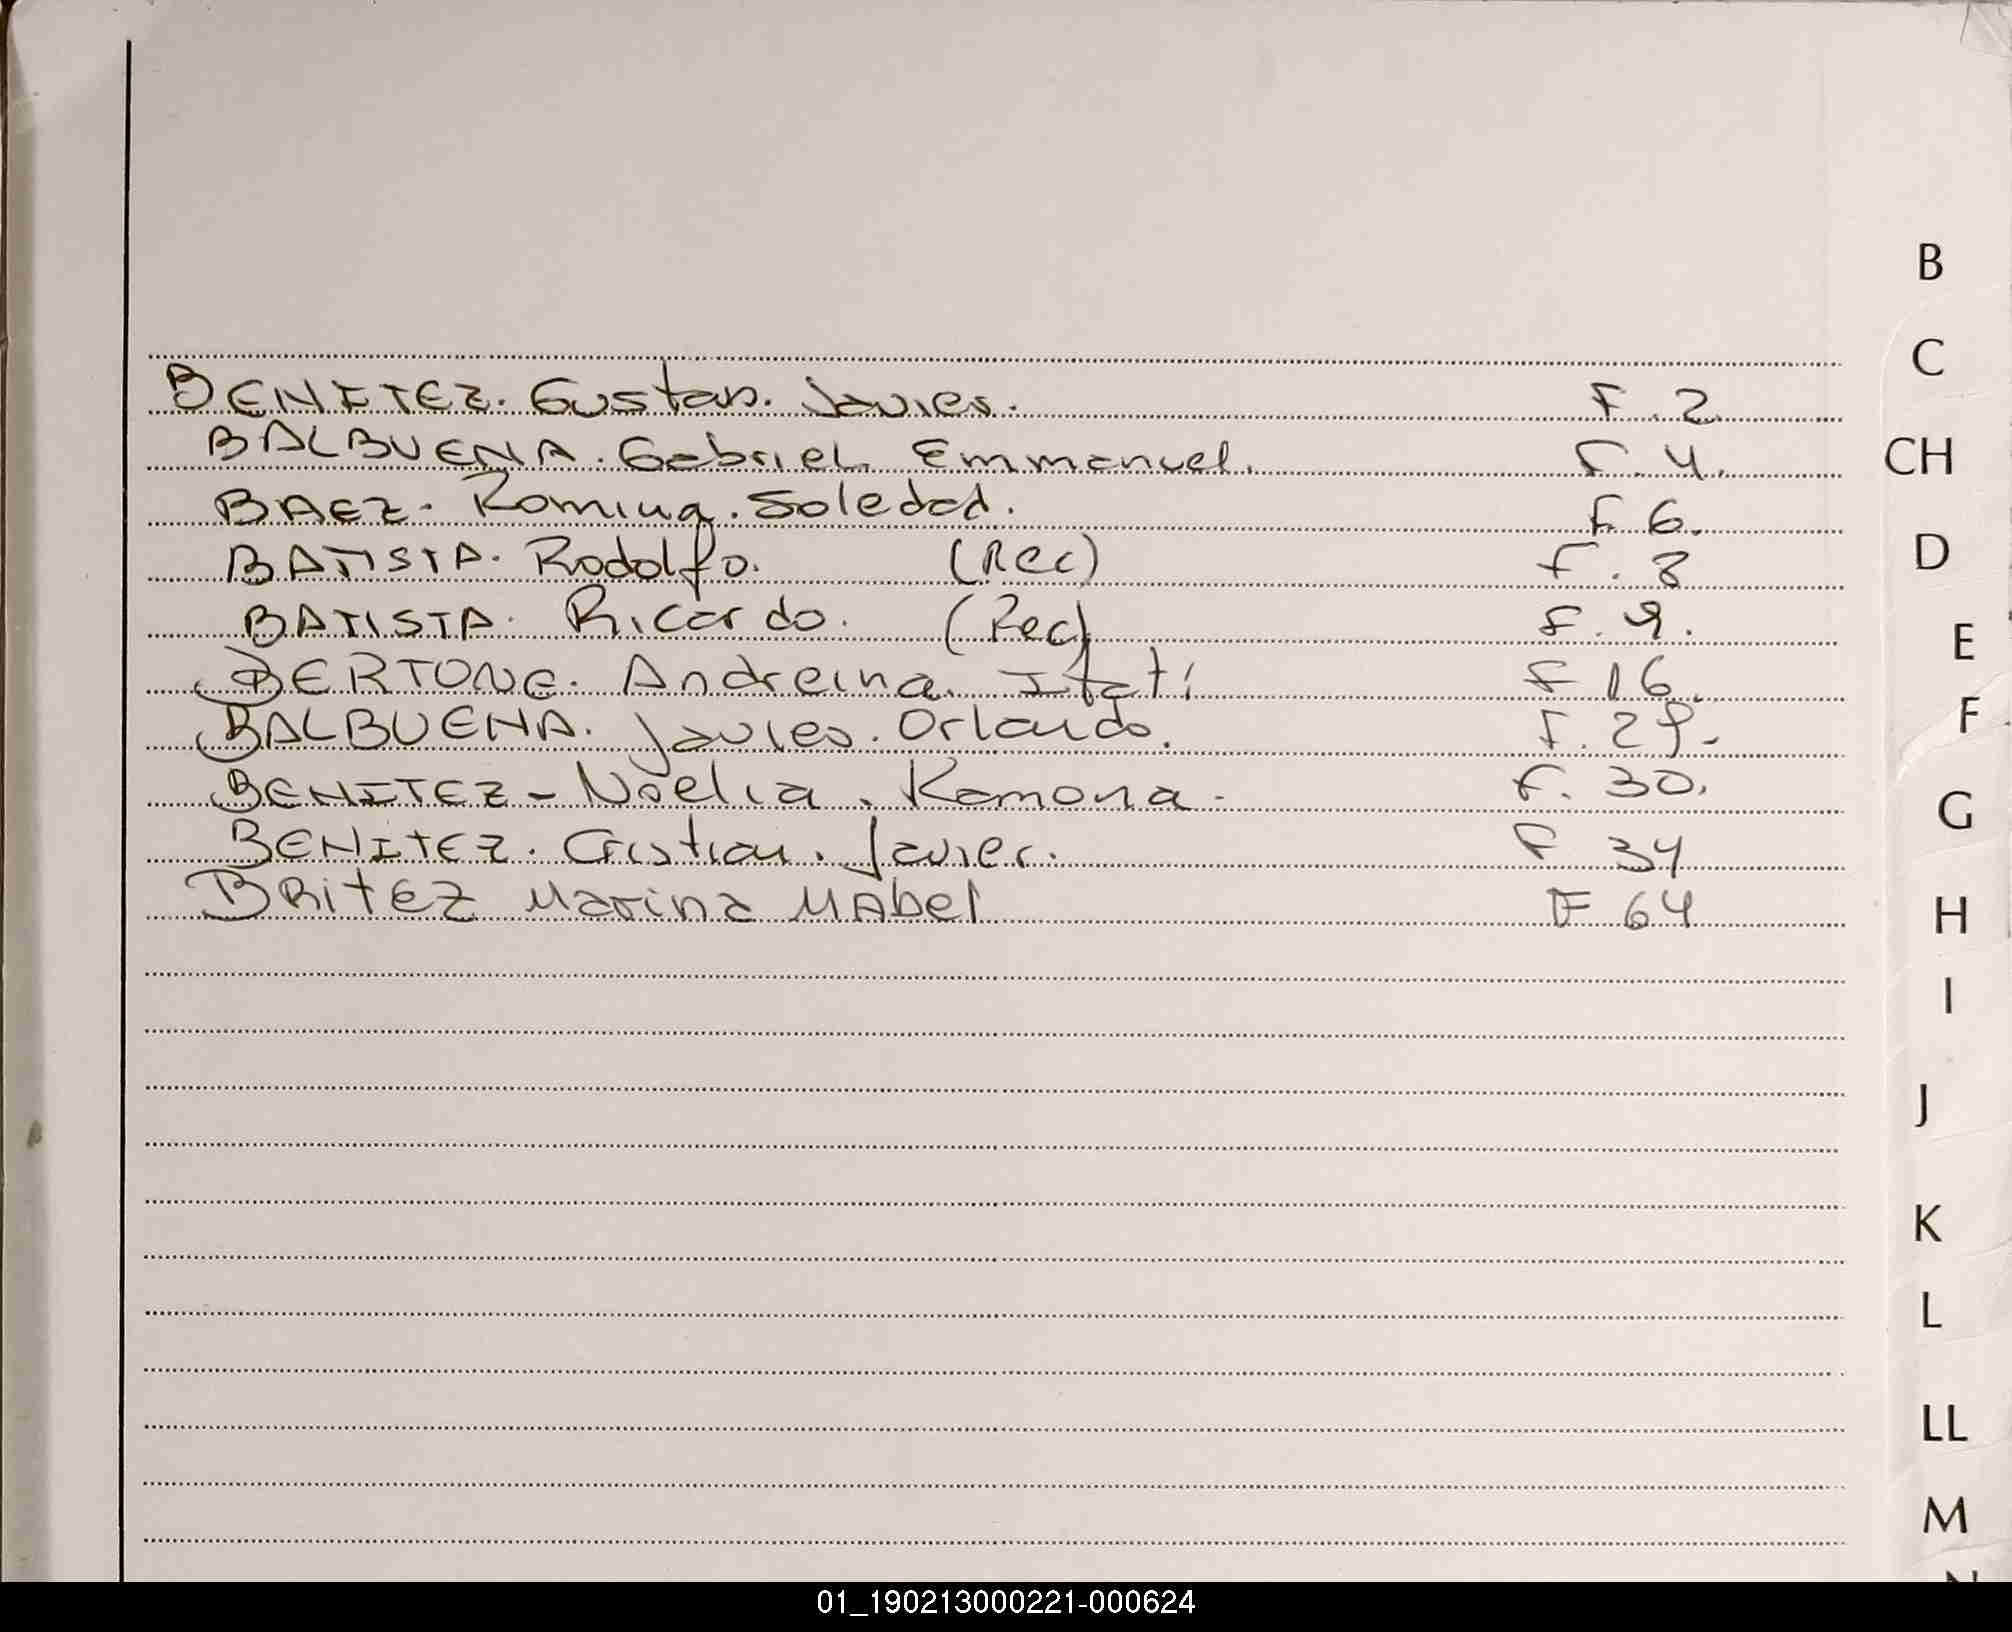 B
C
BENITEZ. Gustavo. Javier. F. 2.
BALBUENA. Gabriel Emmanuel. F. 4.
CH
BAEZ. Romina. Soledad. F. 6.
BATISTA. Rodolfo. (Rec) F. 8
D
BATISTA. Ricardo. (Rec) F. 9.
E
BERTONE. Andreina. Itati F 16.
F
BALBUENA. Javier. Orlando. F. 29-
BENITEZ - Noelia. Ramona. F. 30.
G
BENITEZ. Cristian. Javier. F 34
BRitEZ Marina MAbel F 64
H
I
J
K
L
LL
M
01_190213000221-000624